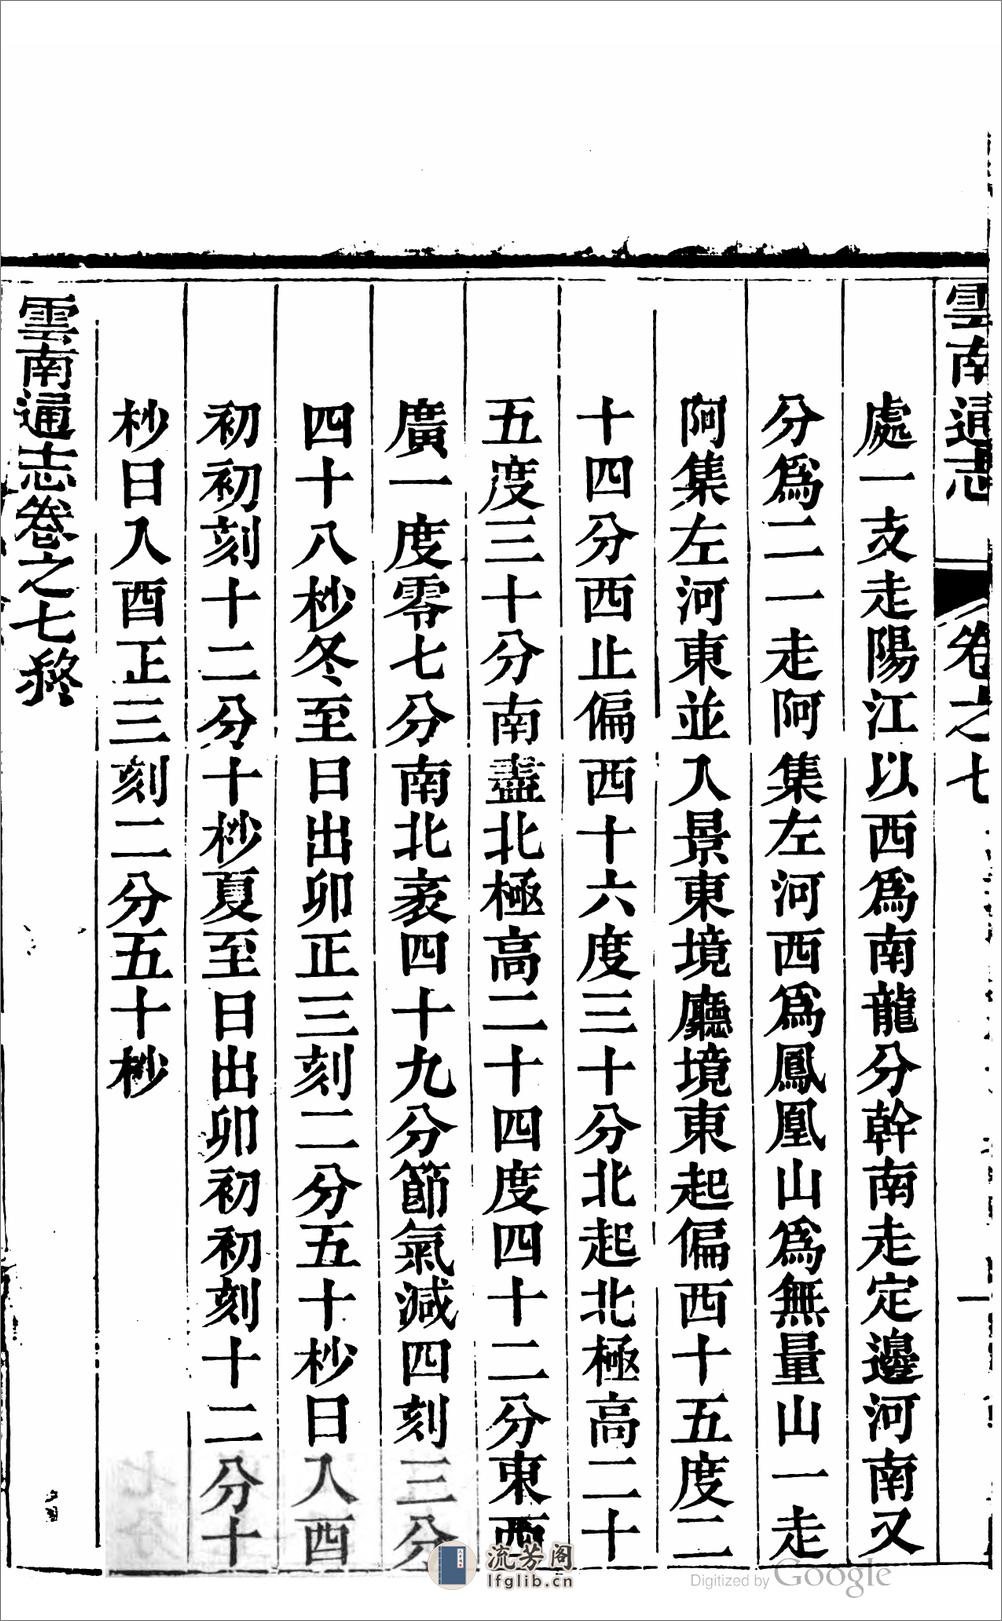 雲南通志 卷之七
處一支走陽江以西爲南龍分幹南走定邊河南又
分爲二一走阿集左河西爲鳳凰山爲無量山一走
阿集左河東並入景東境廳境東起偏西十五度二
十四分西止偏西十六度三十分北起北極高二十
五度三十分南盡北極高二十四度四十二分東西
廣一度零七分南北袤四十九分節氣減四刻三分
四十八杪冬至日出卯正三刻二分五十杪日入酉
初初刻十二分十杪夏至日出卯初初刻十二分十
杪日入酉正三刻二分五十杪
雲南通志卷之七終
流芳阁
lfglib.cn
Digitized by Google